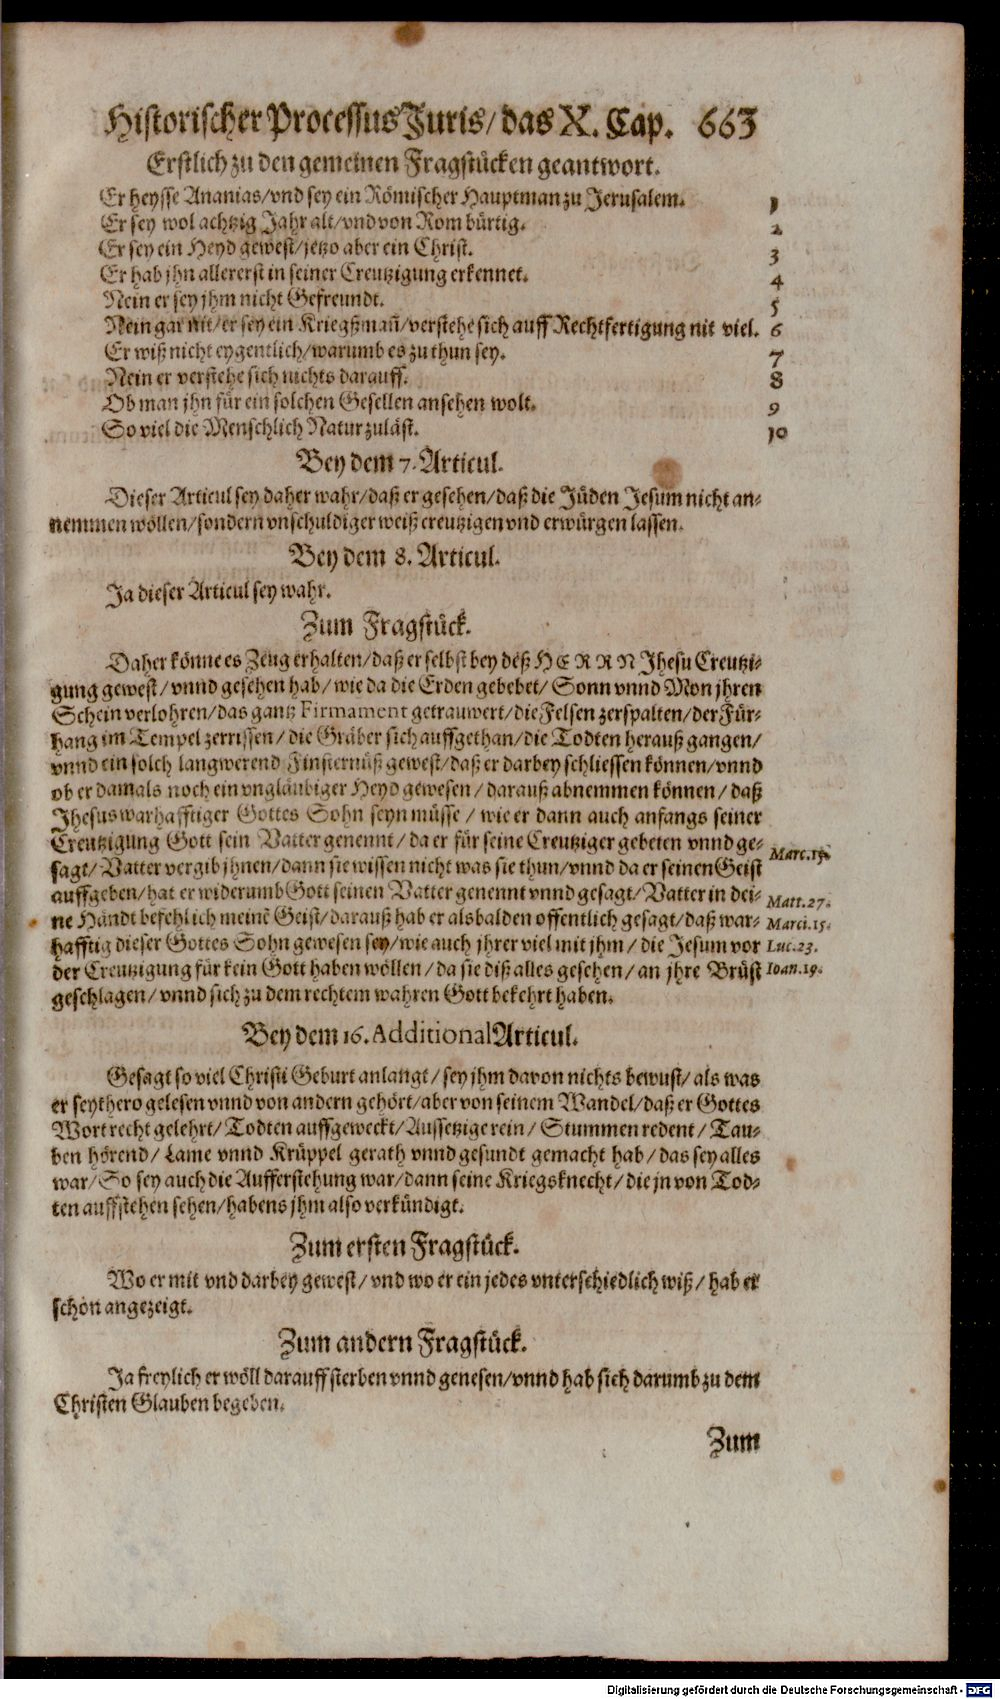 Historischer Processus Juris/ das X. Cap. 663
Erstlich zu den gemeinen Fragstücken geantwort.
Er heysse Ananias/ vnd sey ein Römischer Hauptman zu Jerusalem. 1
Er sey wol achtzig Jahr alt/ vnd von Rom bürtig. 2
Er sey ein Heyd gewest/ jetzo aber ein Christ. 3
Er hab jhn allererst in seiner Creutzigung erkennet. 4
Nein er sey jhm nicht Gefreundt. 5
Nein gar nit/ er sey ein Kriegßmañ/ verstehe sich auff Rechtfertigung nit viel. 6
Er wiß nicht eygentlich/ warumb es zu thun sey. 7
Nein er verstehe sich nichts darauff. 8
Ob man jhn für ein solchen Gesellen ansehen wolt. 9
So viel die Menschlich Natur zuläst. 10
Bey dem 7. Articul.
Dieser Articul sey daher wahr/ daß er gesehen/ daß die Jüden Jesum nicht an-
nemmen wöllen/ sondern vnschuldiger weiß creutzigen vnd erwürgen lassen.
Bey dem 8. Articul.
Ja dieser Articul sey wahr.
Zum Fragstück.
Daher könne es Zeug erhalten/ daß er selbst bey deß HERRN Jhesu Creutzi-
gung gewest/ vnnd gesehen hab/ wie da die Erden gebebet/ Sonn vnnd Mon jhren
Schein verlohren/ das gantz Firmament getrauwert/ die Felsen zerspalten/ der Für-
hang im Tempel zerrissen/ die Gräber sich auffgethan/ die Todten herauß gangen/
vnnd ein solch langwerend Finsternüß gewest/ daß er darbey schliessen können/ vnnd
ob er damals noch ein vngläubiger Heyd gewesen/ darauß abnemmen können/ daß
Jhesus warhafftiger Gottes Sohn seyn müsse/ wie er dann auch anfangs seiner
Creutzigung Gott sein Vatter genennt/ da er für seine Creutziger gebeten vnnd ge-
sagt/ Vatter vergib jhnen/ dann sie wissen nicht was sie thun/ vnnd da er seinen Geist
Marc.15.
auffgeben/ hat er widerumb Gott seinen Vatter genennt vnnd gesagt/ Vatter in dei-
Matt.27.
ne Händt befehl ich meinẽ Geist/ darauß hab er alsbalden offentlich gesagt/ daß war-
Marci.15.
hafftig dieser Gottes Sohn gewesen sey/ wie auch jhrer viel mit jhm/ die Jesum vor
Luc.23.
der Creutzigung für kein Gott haben wöllen/ da sie diß alles gesehen/ an jhre Brüst
Ioan.19.
geschlagen/ vnnd sich zu dem rechtem wahren Gott bekehrt haben.
Bey dem 16. Additional Articul.
Gesagt so viel Christi Geburt anlangt/ sey jhm davon nichts bewust/ als was
er seythero gelesen vnnd von andern gehört/ aber von seinem Wandel/ daß er Gottes
Wort recht gelehrt/ Todten auffgeweckt/ Aussetzige rein/ Stummen redent/ Tau-
ben hörend/ Lame vnnd Krüppel gerath vnnd gesundt gemacht hab/ das sey alles
war/ So sey auch die Aufferstehung war/ dann seine Kriegsknecht/ die jn von Tod-
ten auffstehen sehen/ habens jhm also verkündigt.
Zum ersten Fragstück.
Wo er mit vnd darbey gewest/ vnd wo er ein jedes vnterschiedlich wiß/ hab er
schon angezeigt.
Zum andern Fragstück.
Ja freylich er wöll darauff sterben vnnd genesen/ vnnd hab sich darumb zu dem
Christen Glauben begeben.
Zum
Digitalisierung gefördert durch die Deutsche Forschungsgemeinschaft - DFG